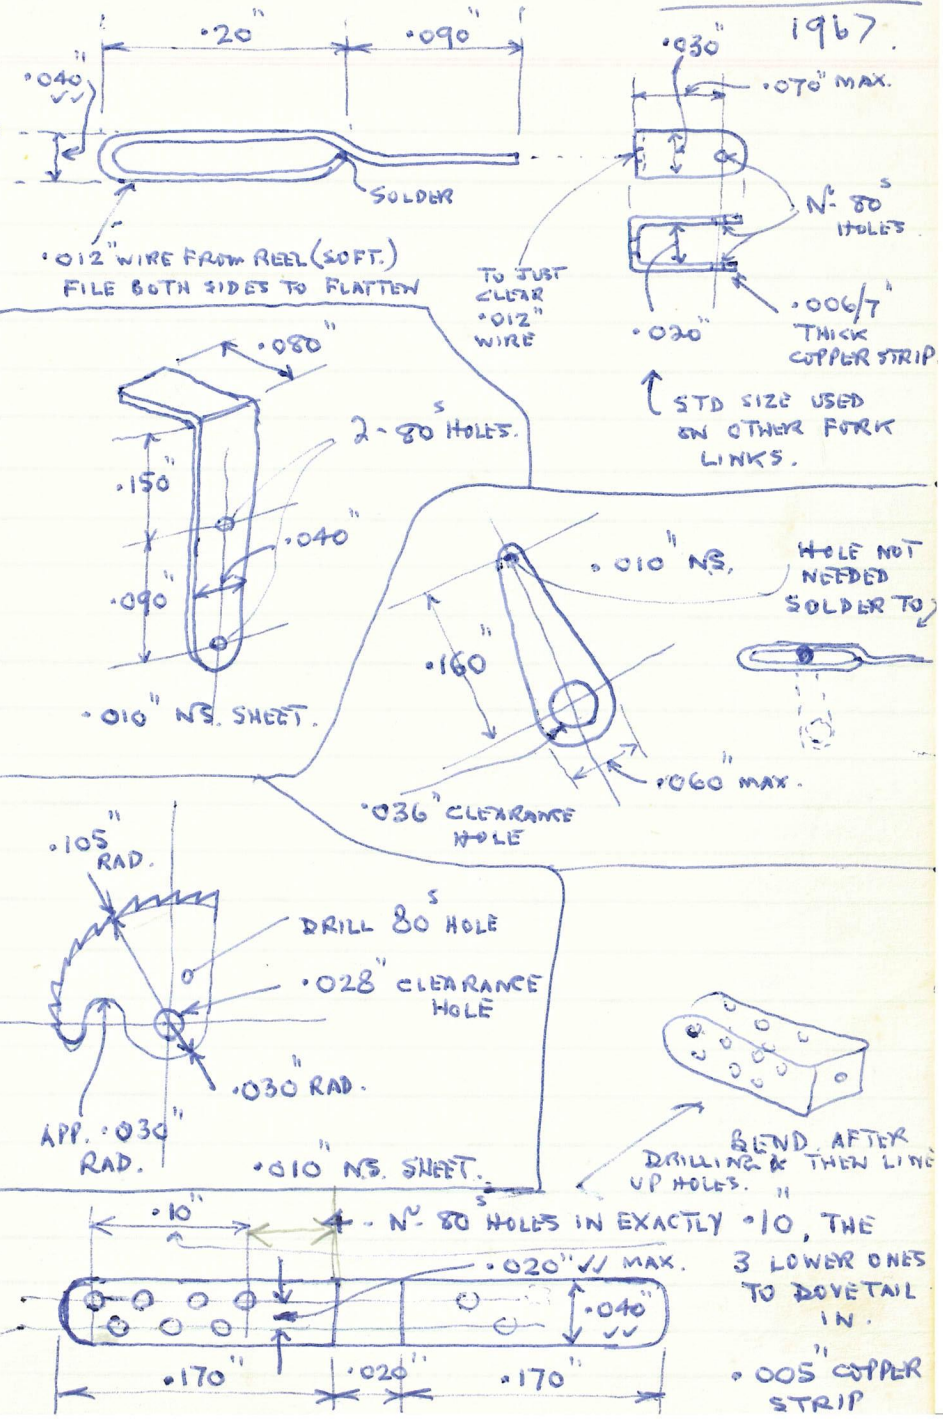 1967.
.20"
.090"
.030"
.040"
✓✓
.070" MAX.
SOLDER
Nº 80s
HOLES
.012" WIRE FROM REEL (SOFT.)
FILE BOTH SIDES TO FLATTEN
TO JUST
CLEAR
.012"
WIRE
.020"
.006/7"
THICK
COPPER STRIP.
STD SIZE USED
ON OTHER FORK
LINKS.
.080"
2-80s HOLES.
.150"
.040"
.090"
.010" N.S. SHEET.
.010" N.S.
HOLE NOT
NEEDED
SOLDER TO
.160"
.060" MAX.
.036" CLEARANCE
HOLE
.105"
RAD.
DRILL 80s HOLE
.028" CLEARANCE
HOLE
.030" RAD.
APP. .030"
RAD.
.010" N.S. SHEET.
BEND AFTER
DRILLING & THEN LINE
UP HOLES.
.10"
4 - Nº 80s HOLES IN EXACTLY .10", THE
3 LOWER ONES
TO DOVETAIL
IN.
.020" ✓✓ MAX.
.040"
✓✓
.170"
.020"
.170"
.005" COPPER
STRIP